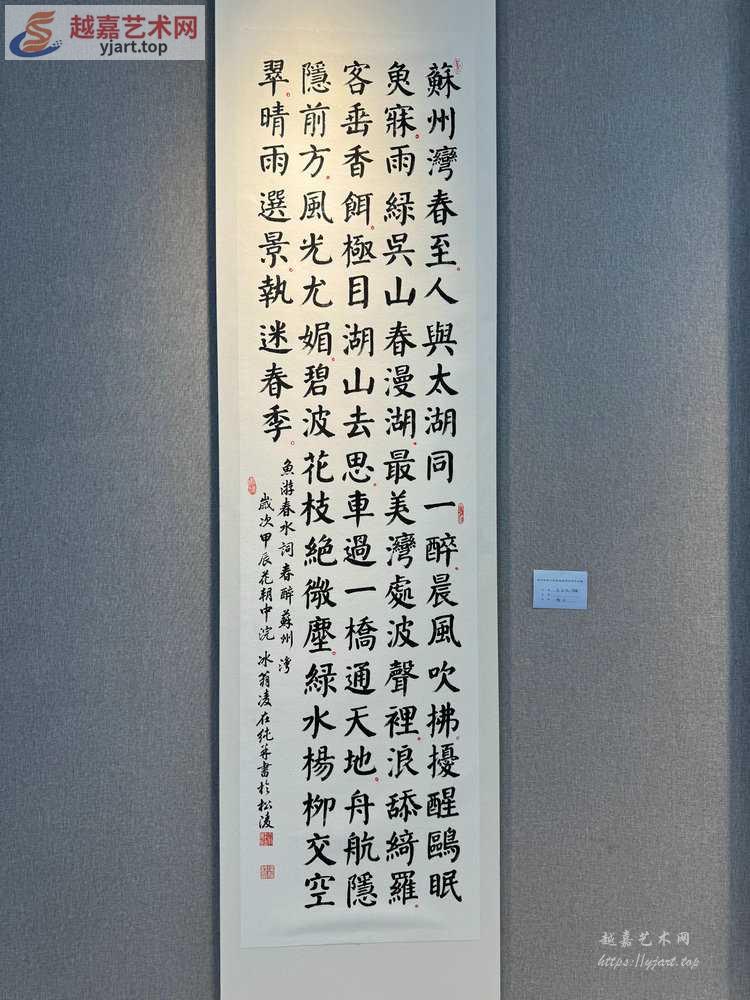 越嘉艺术网
yjart.top
蘇州灣春至人與太湖同一醉晨風吹拂擾醒鷗眠
魚寐雨綠吳山春漫湖最美灣處波聲裡浪舔綺羅
客垂香餌極目湖山去思車過一橋通天地舟航隱
隱前方風光尤媚碧波花枝絕微塵綠水楊柳交空
翠晴雨選景執迷春季
魚游春水詞春醉蘇州灣
歲次甲辰花朝中浣 冰翁凌在純并書於松凌
越嘉艺术网
https://yjart.top